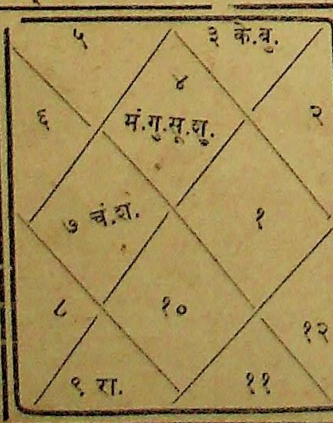 ५
३ के.बु.
४
६
मं.गु.सू.शु.
२
७ चं.श.
१
८
१०
१२
९ रा.
११